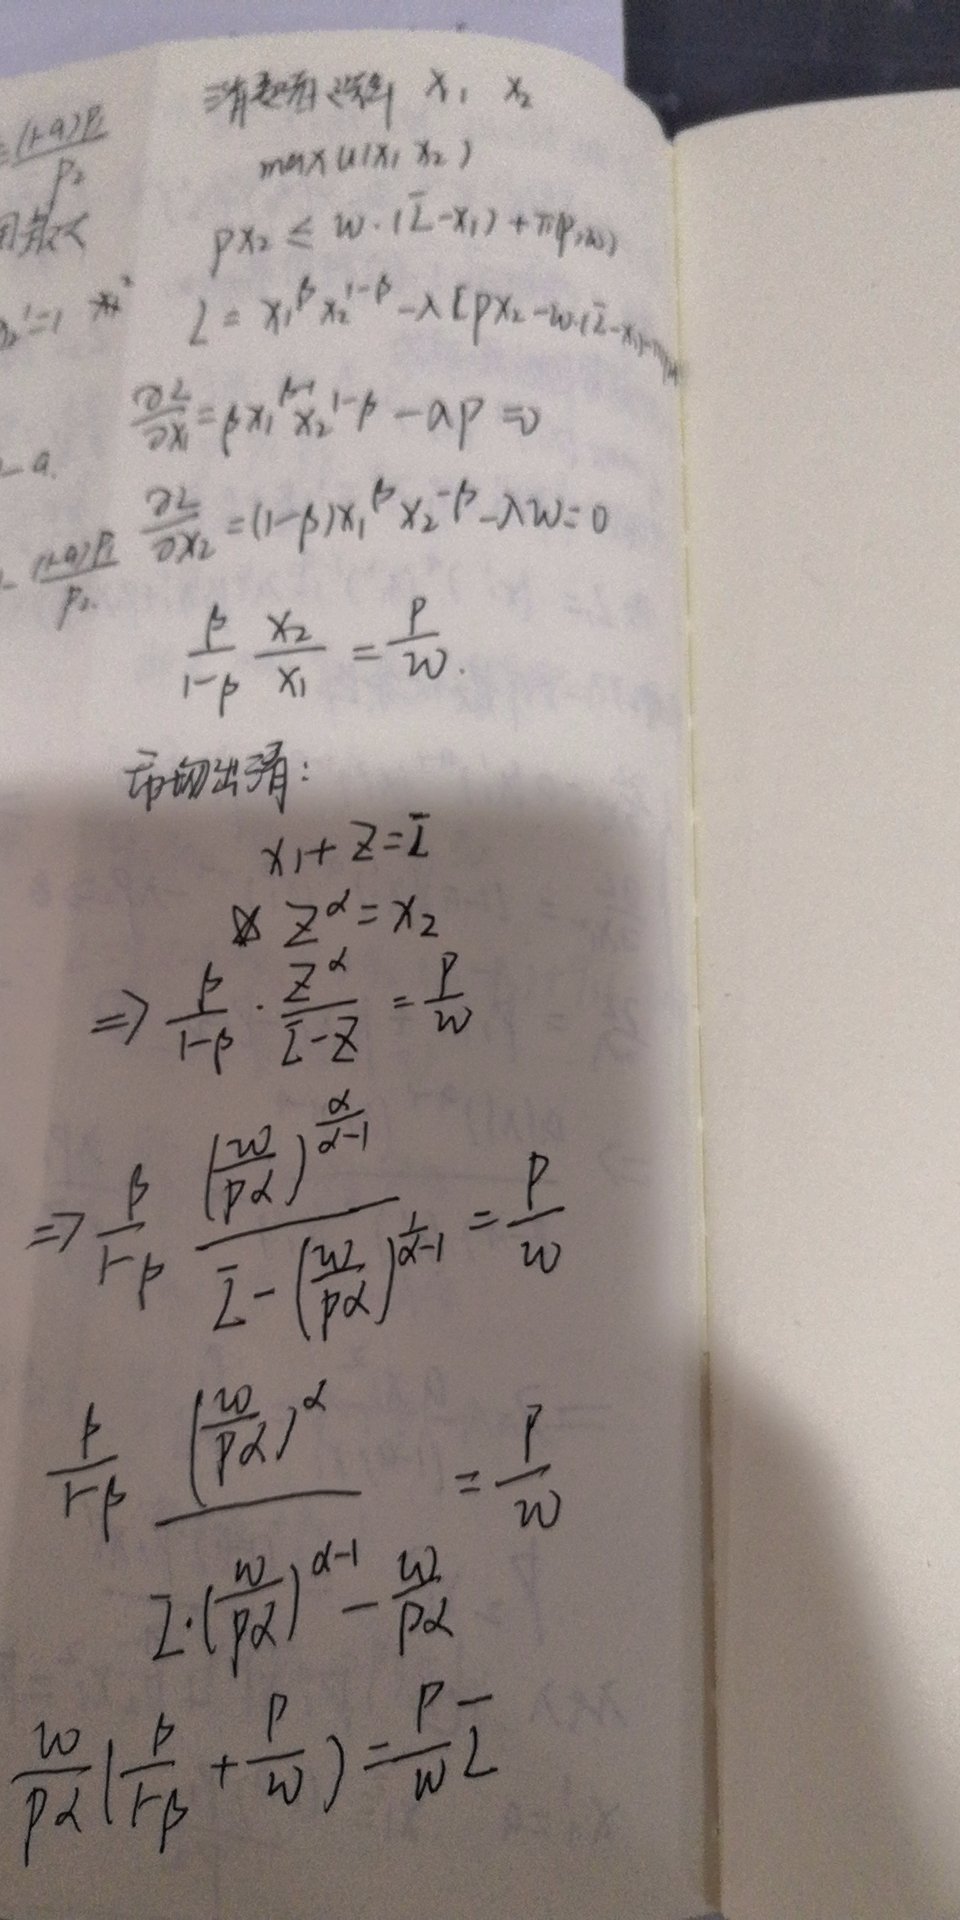 =(1-a)P₁/P₂
消费者选择 x₁ x₂
max u(x₁ x₂)
px₂ ≤ w·(L̄-x₁)+π(p,w)
L = x₁^β x₂^(1-β) -λ[px₂-w·(L̄-x₁)-
∂L/∂x₁ = βx₁^(β-1) x₂^(1-β) - λp = 0
-a.
∂L/∂x₂ = (1-β)x₁^β x₂^(-β) - λw = 0
(1-a)P₁/P₂.
β/(1-β) x₂/x₁ = p/w.
市场出清:
x₁+z=L̄
z^α = x₂
⇒ β/(1-β) · z^α/(L̄-z) = p/w
⇒ β/(1-β) (w/(pα))^(α/(α-1)) / (L̄-(w/(pα))^(1/(α-1))) = p/w
β/(1-β) (w/(pα))^α / (L̄·(w/(pα))^(α-1) - w/(pα)) = p/w
w/(pα) (β/(1-β) + p/w) = p/w L̄